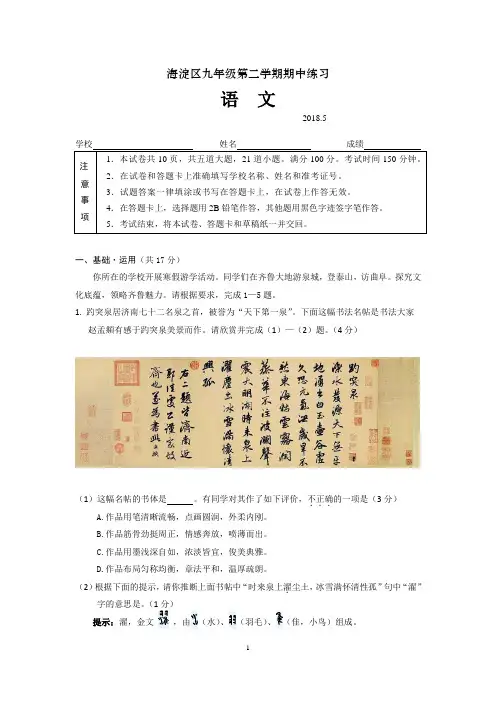 海淀区九年级第二学期期中练习
语 文
2018.5
学校 姓名 成绩
注意事项
1．本试卷共10页，共五道大题，21道小题。满分100分。考试时间150分钟。
2．在试卷和答题卡上准确填写学校名称、姓名和准考证号。
3．试题答案一律填涂或书写在答题卡上，在试卷上作答无效。
4．在答题卡上，选择题用2B铅笔作答，其他题用黑色字迹签字笔作答。
5．考试结束，将本试卷、答题卡和草稿纸一并交回。
一、基础·运用（共17分）
你所在的学校开展寒假游学活动。同学们在齐鲁大地游泉城，登泰山，访曲阜。探究文
化底蕴，领略齐鲁魅力。请根据要求，完成1—5题。
1. 趵突泉居济南七十二名泉之首，被誉为“天下第一泉”。下面这幅书法名帖是书法大家
赵孟頫有感于趵突泉美景而作。请欣赏并完成（1）—（2）题。（4分）
趵突泉
濼水發源天下無平
地涌出白玉壺谷虛
久恐元氣洩歲旱不
愁東海枯雲霧潤
蒸華不注波瀾聲
震大明湖時來泉上
濯塵土冰雪滿懷清
興孤
右二題皆濟南近
郭佳處公謹家故
齊也遂為書此孟頫
（1）这幅名帖的书体是 。有同学对其作了如下评价，不正确的一项是（3分）
A.作品用笔清晰流畅，点画圆润，外柔内刚。
B.作品筋骨劲挺周正，情感奔放，喷薄而出。
C.作品用墨浅深自如，浓淡皆宜，俊美典雅。
D.作品布局匀称均衡，章法平和，温厚疏朗。
（2）根据下面的提示，请你推断上面书帖中“时来泉上濯尘土，冰雪满怀清性孤”句中“濯”
字的意思是。（1分）
提示：濯，金文 ，由 （水）、 （羽毛）、 （隹，小鸟）组成。
1